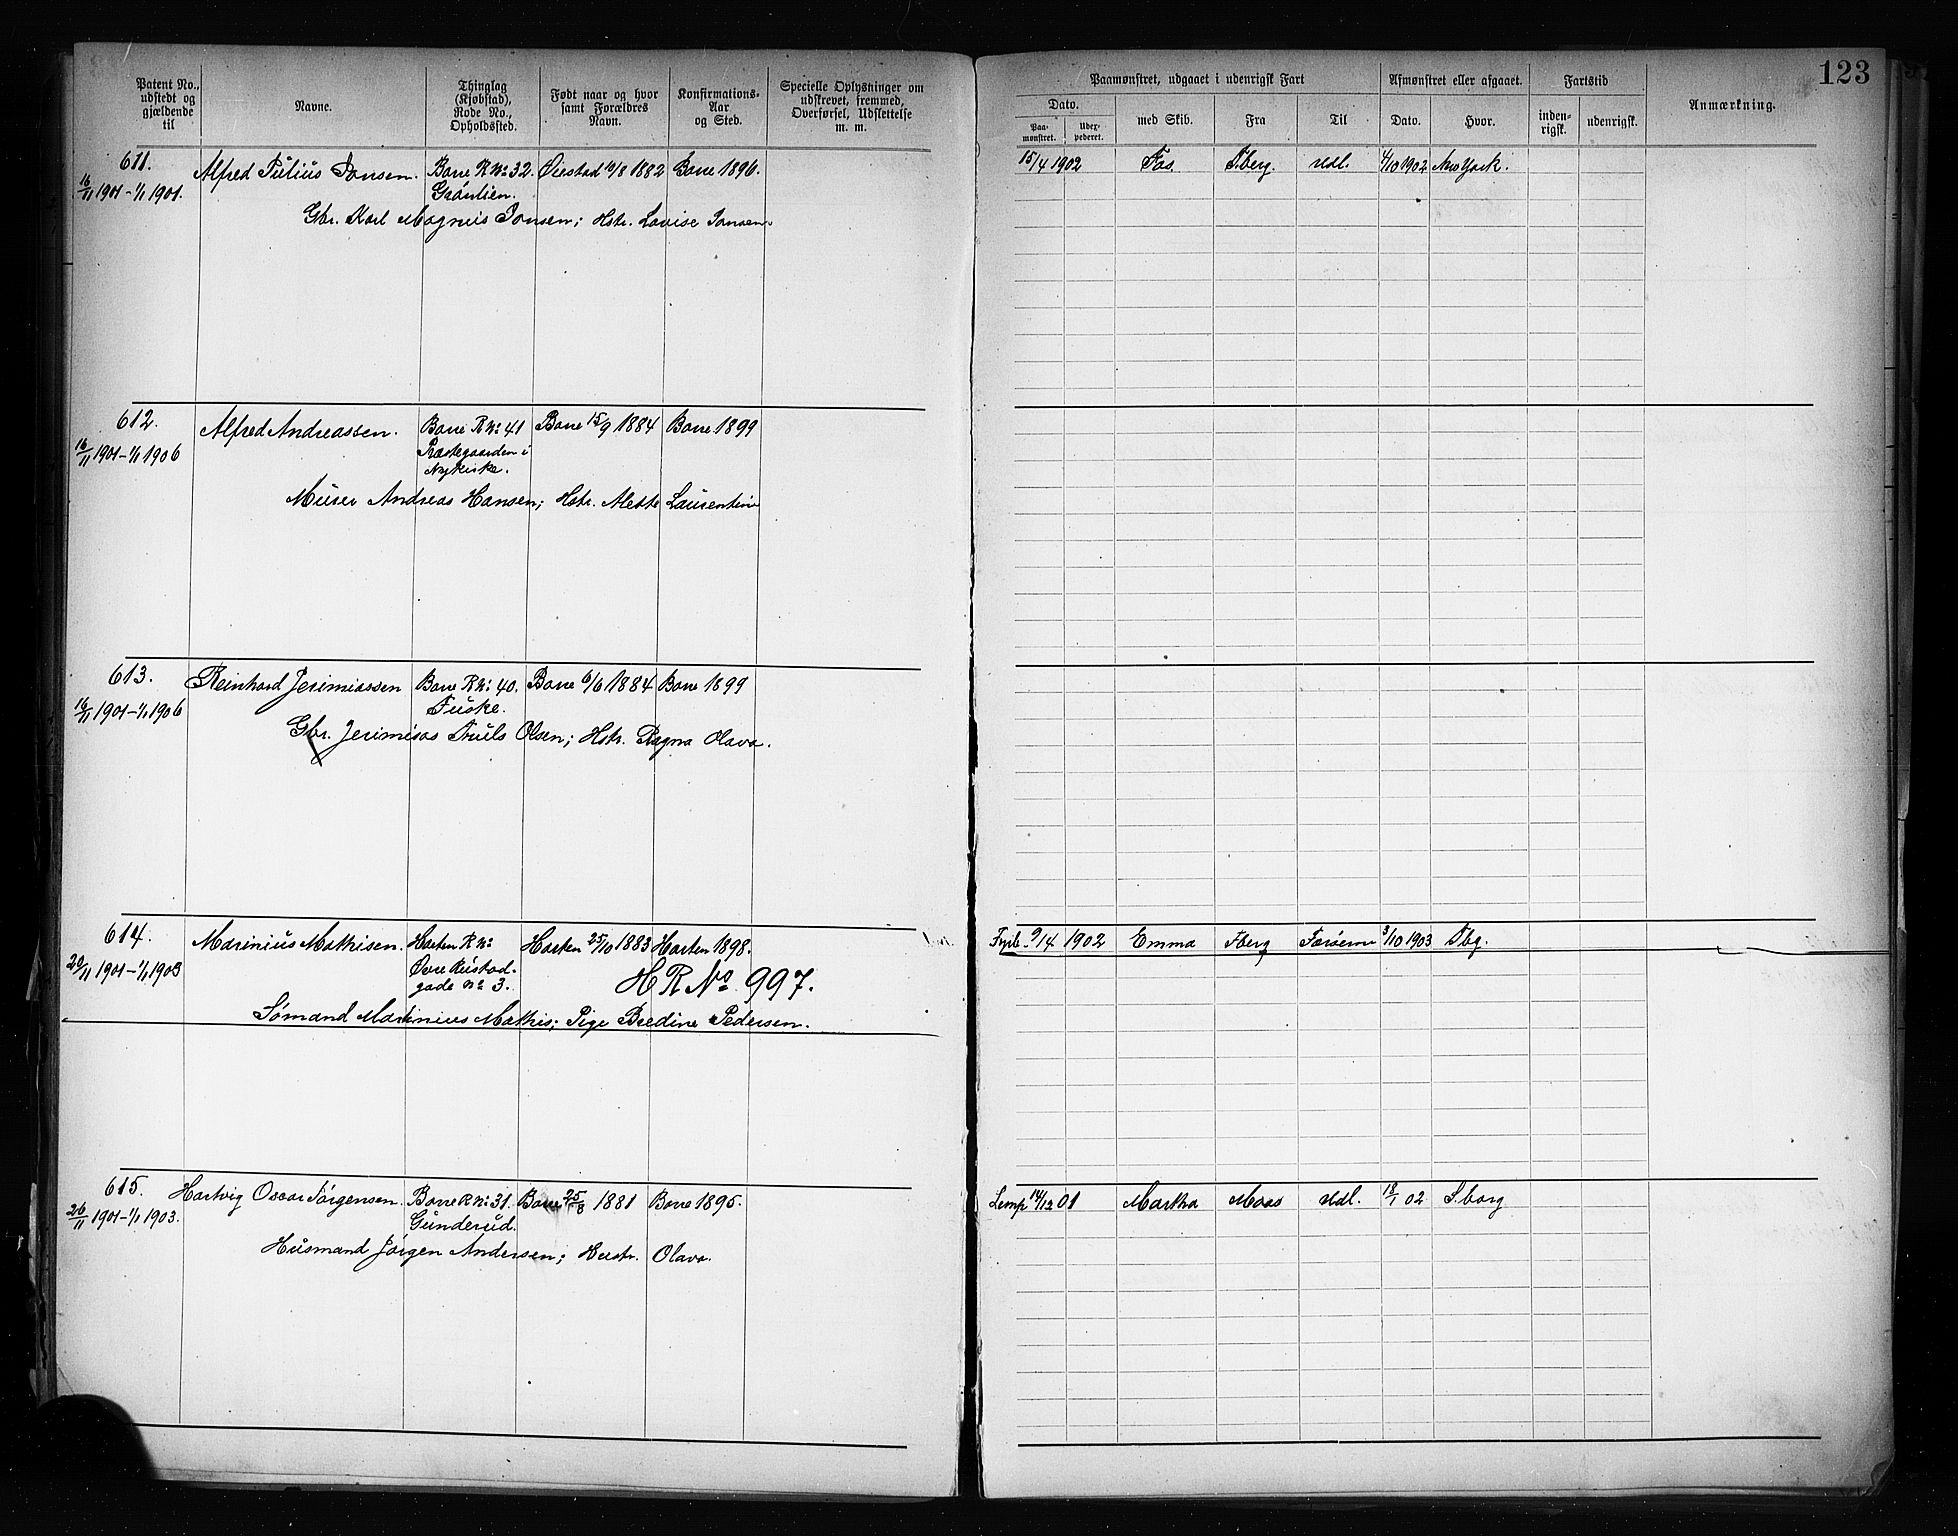 123
Patent No., udstedt og gjældende til
Navne.
Thinglag (Kjøbstad), Rode No., Opholdssted.
Født naar og hvor samt Forældres Navn.
Konfirmations-Aar og Sted.
Specielle Oplysninger om udskrevet, fremmed, Overførsel, Udslettelse m. m.
Paamønstret, udgaaet i udenrigsk Fart
Dato.
Paa-mønstret.
med Skib.
Fra
Til
Afmønstret eller afgaaet.
Dato.
Hvor.
Fartstid
inden-rigsk.
udenrigsk.
Anmærkning.
611.
16/11 1901 - 1/1 1901.
Alfred Julius Jansen.
Borre R No 32.
Ørestad 10/8 1882
Borre 1896.
Gbr. Karl Magnus Jansen; Hstr. Lovise Jansen.
15/4 1902
Fas.
Tberg.
Udl.
4/10 1902
New York.
612.
16/11 1901 - 1/1 1906
Alfred Andreassen.
Borre R No 41
Præstegaarden i
Nykirke.
Borre 15/9 1884
Borre 1899
Murer Andreas Hansen; Hstr. Mette Laurentine
613.
16/11 1901 - 1/1 1906
Reinhard Jerimiassen
Borre R No 40.
Fuske.
Borre 6/6 1884
Borre 1899
Gbr. Jerimias Truls Olsen; Hstr. Ragna Olava.
614.
20/11 1901 - 1/1 1903
Marinius Mathisen.
Horten R No
Øvre Keistad-
gade No 3.
Horten 25/10 1883
Horten 1898.
H R No 997.
Sømand Marinius Mathis; Pige Bredine Pedersen.
9/14 1902
Emma
Tberg
Færøerne
3/10 1903
Tbg.
615.
26/11 1901 - 1/1 1903.
Hartvig Oscar Jörgensen.
Borre R No 31.
Gunderud.
Borre 25/8 1881
Borre 1895.
Husmand Jörgen Andersen; Hustr. Olava.
14/12 01
Martha
Moss
Udl.
18/1 02
S.borg